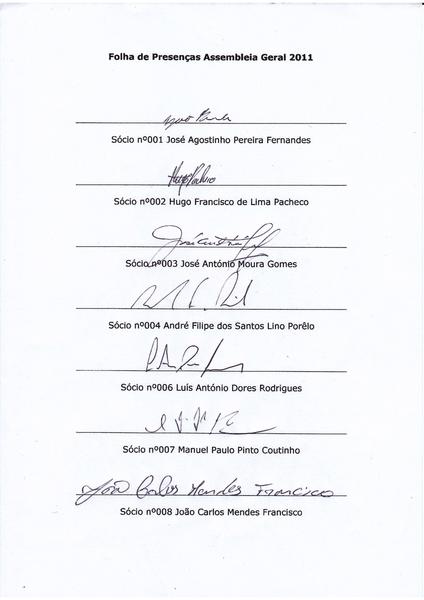 Folha de Presenças Assembleia Geral 2011
Sócio nº001 José Agostinho Pereira Fernandes
Hugo Pacheco
Sócio nº002 Hugo Francisco de Lima Pacheco
Sócio nº003 José António Moura Gomes
Sócio nº004 André Filipe dos Santos Lino Porêlo
Sócio nº006 Luís António Dores Rodrigues
Sócio nº007 Manuel Paulo Pinto Coutinho
João Carlos Mendes Francisco
Sócio nº008 João Carlos Mendes Francisco